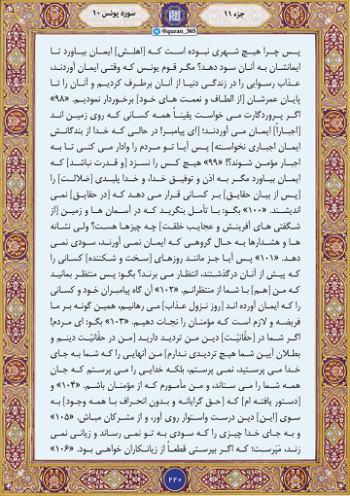 جزء ۱۱
سوره یونس ۱۰
@quran_365
پس چرا هیچ شهری نبوده است که [اهلش] ایمان بیاورد تا
ایمانشان به آنان سود دهد؟ مگر قوم یونس که وقتی ایمان آوردند،
عذاب رسوایی را در زندگی دنیا از آنان برطرف کردیم و آنان را تا
پایان عمرشان [از الطاف و نعمت های خود] برخوردار نمودیم. «۹۸»
اگر پروردگارت می خواست یقیناً همه کسانی که روی زمین اند
[اجباراً] ایمان می آوردند؛ [ای پیامبر! در حالی که خدا از بندگانش
ایمان اجباری نخواسته] پس آیا تو مردم را وادار می کنی تا به
اجبار مؤمن شوند؟! «۹۹» هیچ کس را نسزد [و قدرت نباشد] که
ایمان بیاورد مگر به اذن و توفیق خدا، و خدا پلیدی [ضلالت] را
[پس از بیان حقایق] بر کسانی قرار می دهد که [در حقایق] نمی
اندیشند. «۱۰۰» بگو: با تأمل بنگرید که در آسمان ها و زمین [از
شگفتی های آفرینش و عجایب خلقت] چه چیزها هست؟ ولی نشانه
ها و هشدارها به حال گروهی که ایمان نمی آورند، سودی نمی
دهد. «۱۰۱» پس آیا جز مانند روزهای [سخت و شکننده] کسانی را
که پیش از آنان درگذشتند، انتظار می برند؟ بگو: پس منتظر بمانید
که من [هم] با شما از منتظرانم. «۱۰۲» آن گاه پیامبران خود و کسانی
را که ایمان آورده اند [روز نزول عذاب] می رهانیم، همین گونه بر ما
فریضه و لازم است که مؤمنان را نجات دهیم. «۱۰۳» بگو: ای مردم!
اگر شما در [حقّانیّت] دین من تردید دارید [من در حقّانیّت دینم و
بطلان آیین شما هیچ تردیدی ندارم] من آنهایی را که شما به جای
خدا می پرستید، نمی پرستم، بلکه خدایی را می پرستم که جان
همه شما را می ستاند، و من مأمورم که از مؤمنان باشم. «۱۰۴» و
[دستور یافته ام] که [حق گرایانه و بدون انحراف با همه وجود] به
سوی [این] دین درست واستوار روی آور، و از مشرکان مباش. «۱۰۵»
و به جای خدا چیزی را که سودی به تو نمی رساند و زیانی نمی
زند، مپرست؛ که اگر بپرستی قطعاً از زیانکاران خواهی بود. «۱۰۶»
۲۲۰